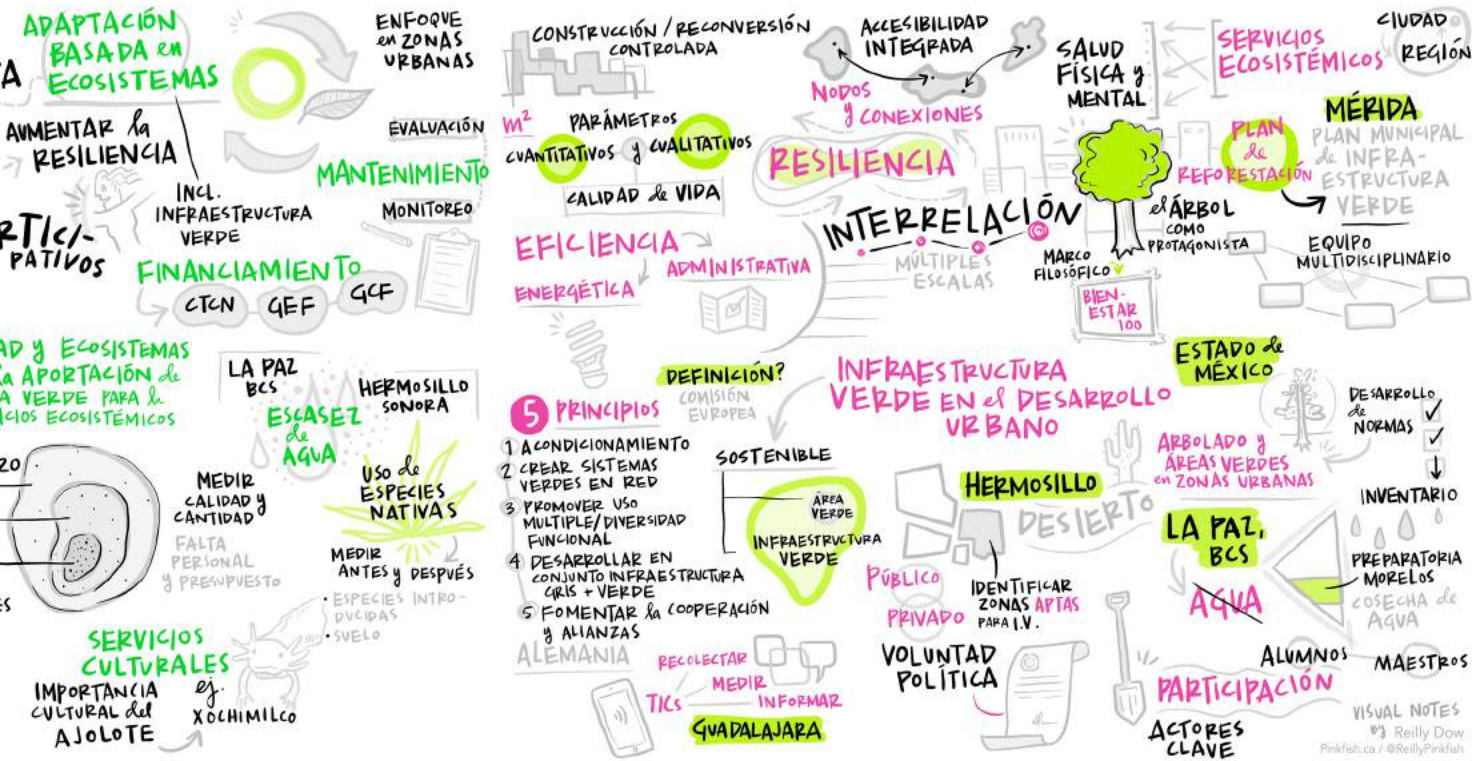 ADAPTACIÓN
BASADA en
ECOSISTEMAS
TA
AUMENTAR la
RESILIENCIA
INCL.
INFRAESTRUCTURA
VERDE
RTICI-
PATIVOS
ENFOQUE
en ZONAS
URBANAS
EVALUACIÓN
MANTENIMIENTO
MONITOREO
FINANCIAMIENTO
CTCN GEF GCF
AD y ECOSISTEMAS
la APORTACIÓN de
A VERDE PARA la
ICIOS ECOSISTÉMICOS
LA PAZ
BCS
ESCASEZ
de
AGUA
HERMOSILLO
SONORA
ZO
MEDIR
CALIDAD y
CANTIDAD
FALTA
PERSONAL
y PRESUPUESTO
USO de
ESPECIES
NATIVAS
MEDIR
ANTES y DESPUÉS
• ESPECIES INTRO-
DUCIDAS
• SUELO
ES
SERVICIOS
CULTURALES
IMPORTANCIA
CULTURAL del
AJOLOTE
ej.
XOCHIMILCO
CONSTRUCCIÓN / RECONVERSIÓN
CONTROLADA
m²
PARÁMETROS
CUANTITATIVOS y CUALITATIVOS
CALIDAD de VIDA
EFICIENCIA
ADMINISTRATIVA
ENERGÉTICA
ACCESIBILIDAD
INTEGRADA
NODOS
y CONEXIONES
RESILIENCIA
INTERRELACIÓN
MÚLTIPLES
ESCALAS
SALUD
FÍSICA y
MENTAL
SERVICIOS
ECOSISTÉMICOS
CIUDAD
REGIÓN
MÉRIDA
PLAN
de
REFORESTACIÓN
PLAN MUNICIPAL
de INFRA-
ESTRUCTURA
VERDE
el ÁRBOL
COMO
PROTAGONISTA
MARCO
FILOSÓFICO
BIEN-
ESTAR
100
EQUIPO
MULTIDISCIPLINARIO
DEFINICIÓN?
COMISIÓN
EUROPEA
5 PRINCIPIOS
1 ACONDICIONAMIENTO
2 CREAR SISTEMAS
VERDES EN RED
3 PROMOVER USO
MULTIPLE/DIVERSIDAD
FUNCIONAL
4 DESARROLLAR EN
CONJUNTO INFRAESTRUCTURA
GRIS + VERDE
5 FOMENTAR la COOPERACIÓN
y ALIANZAS
ALEMANIA
SOSTENIBLE
ÁREA
VERDE
INFRAESTRUCTURA
VERDE
RECOLECTAR
MEDIR
TICs
INFORMAR
GUADALAJARA
INFRAESTRUCTURA
VERDE EN el DESARROLLO
URBANO
HERMOSILLO
DESIERTO
PÚBLICO
PRIVADO
IDENTIFICAR
ZONAS APTAS
PARA I.V.
VOLUNTAD
POLÍTICA
ESTADO de
MÉXICO
ARBOLADO y
ÁREAS VERDES
en ZONAS URBANAS
DESARROLLO
de
NORMAS
INVENTARIO
LA PAZ,
BCS
AGUA
PREPARATORIA
MORELOS
COSECHA de
AGUA
ALUMNOS
MAESTROS
PARTICIPACIÓN
ACTORES
CLAVE
VISUAL NOTES
BY Reilly Dow
Pinkfish.ca / @ReillyPinkfish